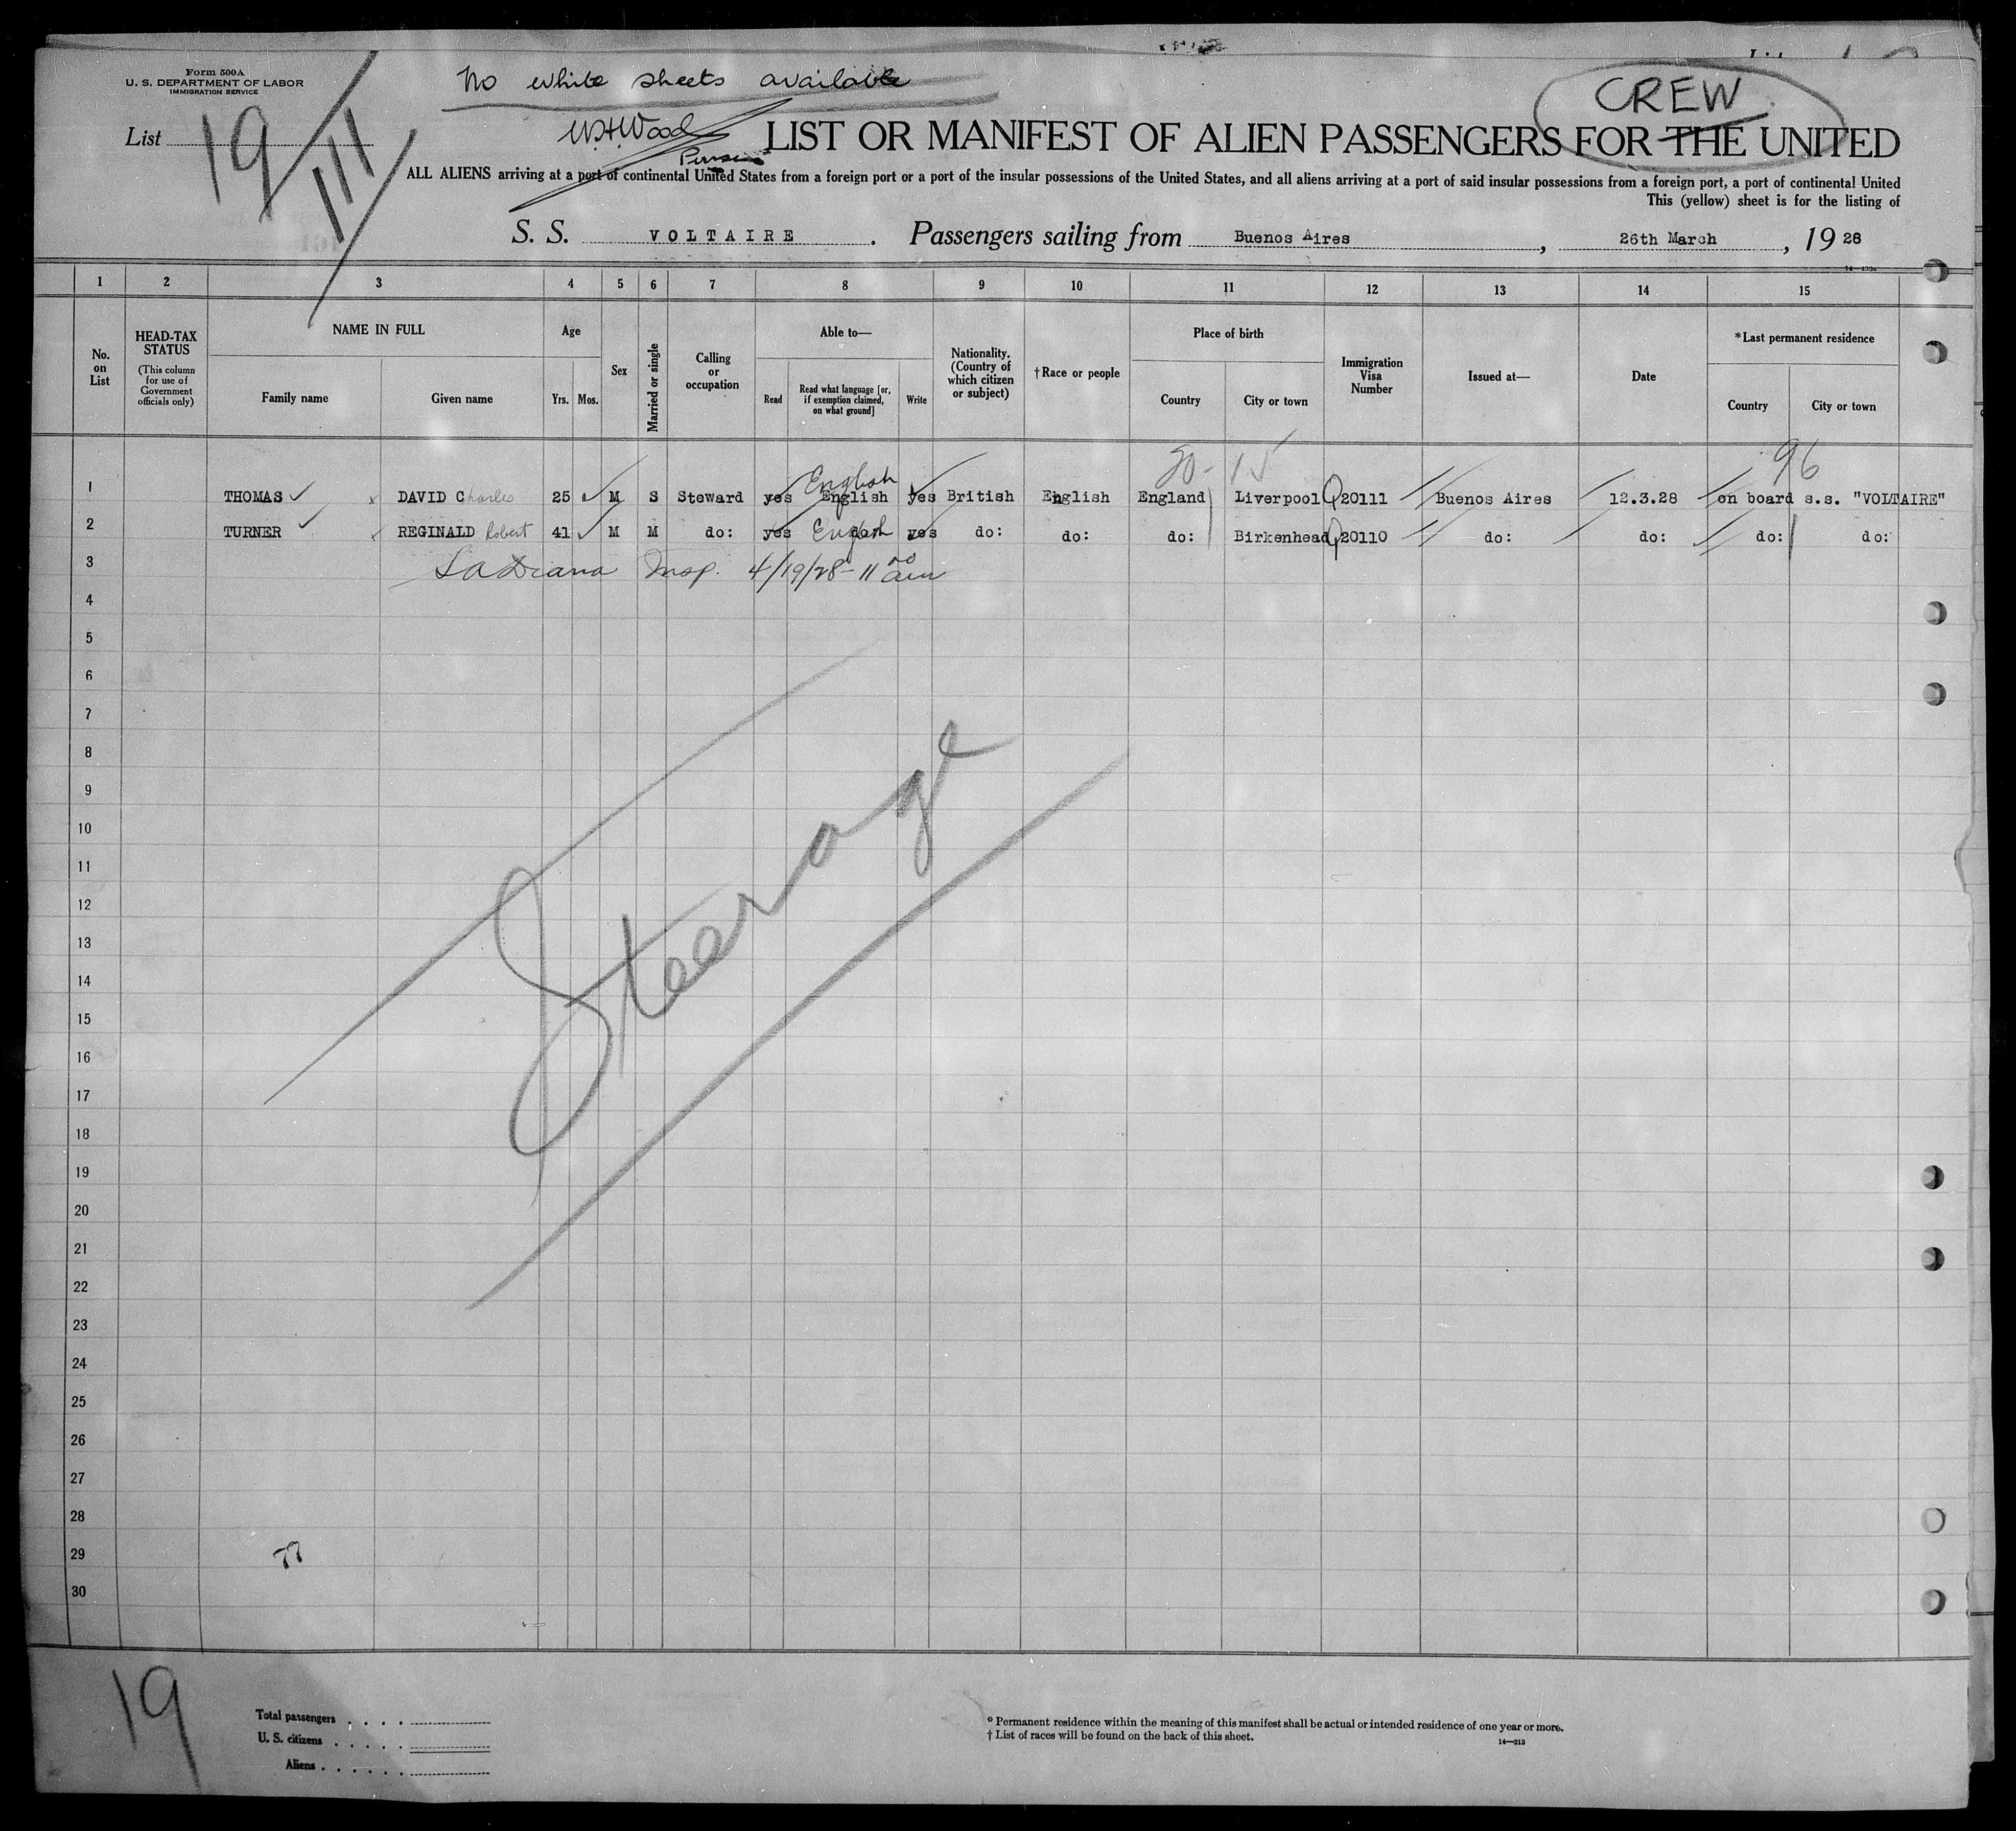 Form 500A
U. S. DEPARTMENT OF LABOR
IMMIGRATION SERVICE
No white sheets available
CREW
List 19
111
W.H.Wood
Purser
LIST OR MANIFEST OF ALIEN PASSENGERS FOR THE UNITED
ALL ALIENS arriving at a port of continental United States from a foreign port or a port of the insular possessions of the United States, and all aliens arriving at a port of said insular possessions from a foreign port, a port of continental United
This (yellow) sheet is for the listing of
S. S. VOLTAIRE. Passengers sailing from Buenos Aires, 26th March, 1928
1 2 3 4 5 6 7 8 9 10 11 12 13 14 15
No. on List
HEAD-TAX STATUS
(This column for use of Government officials only)
NAME IN FULL
Family name Given name
Age
Yrs. Mos.
Sex
Married or single
Calling or occupation
Able to—
Read Read what language [or, if exemption claimed, on what ground] Write
Nationality. (Country of which citizen or subject)
†Race or people
Place of birth
Country City or town
Immigration Visa Number
Issued at—
Date
*Last permanent residence
Country City or town
20- 15 96
English
1 THOMAS DAVID Charles 25 M S Steward yes English yes British English England Liverpool Q20111 Buenos Aires 12.3.28 on board s.s. "VOLTAIRE"
2 TURNER REGINALD Robert 41 M M do: yes English yes do: do: do: Birkenhead Q20110 do: do: do: do:
3 Insp. 4/19/28 - 11 00 am
4
5
6
7
8
9
10
11
12
13
14
15
16
17
18
19
20
21
22
23
24
25
26
27
28
29
30
Steerage
77
19
Total passengers . . . .
U. S. citizens . . . . .
Aliens . . . . . .
* Permanent residence within the meaning of this manifest shall be actual or intended residence of one year or more.
† List of races will be found on the back of this sheet.
14—213